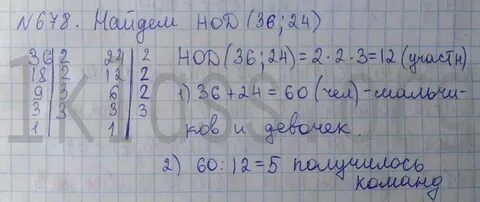 №678. Найдем НОД (36; 24)
36|2 24|2
18|2 12|2
9|3 6|2
3|3 3|3
1| 1|
НОД (36; 24) = 2·2·3 = 12 (участн)
1) 36 + 24 = 60 (чел) - мальчи-
ков и девочек.
2) 60 : 12 = 5 получилось
команд